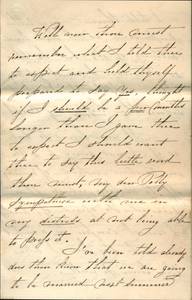 Well now thou must
remember what I told thee
to expect and hold thyself
prepared to say Yes, though
if I should be a few months
longer than I gave thee
to expect I should want
thee to say this little word
thou must, my dear Polly
Sympathize with me in
my distress at not being able
to profess it.
I've been told already
does thou know that we are going
to be married next summer